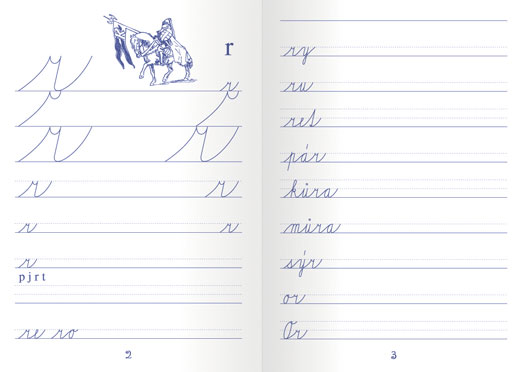 r
r r
r
r r
r r
r r
r
p j r t
re ro
2
ry
ru
ret
pár
kůra
můra
sýr
or
Or
3